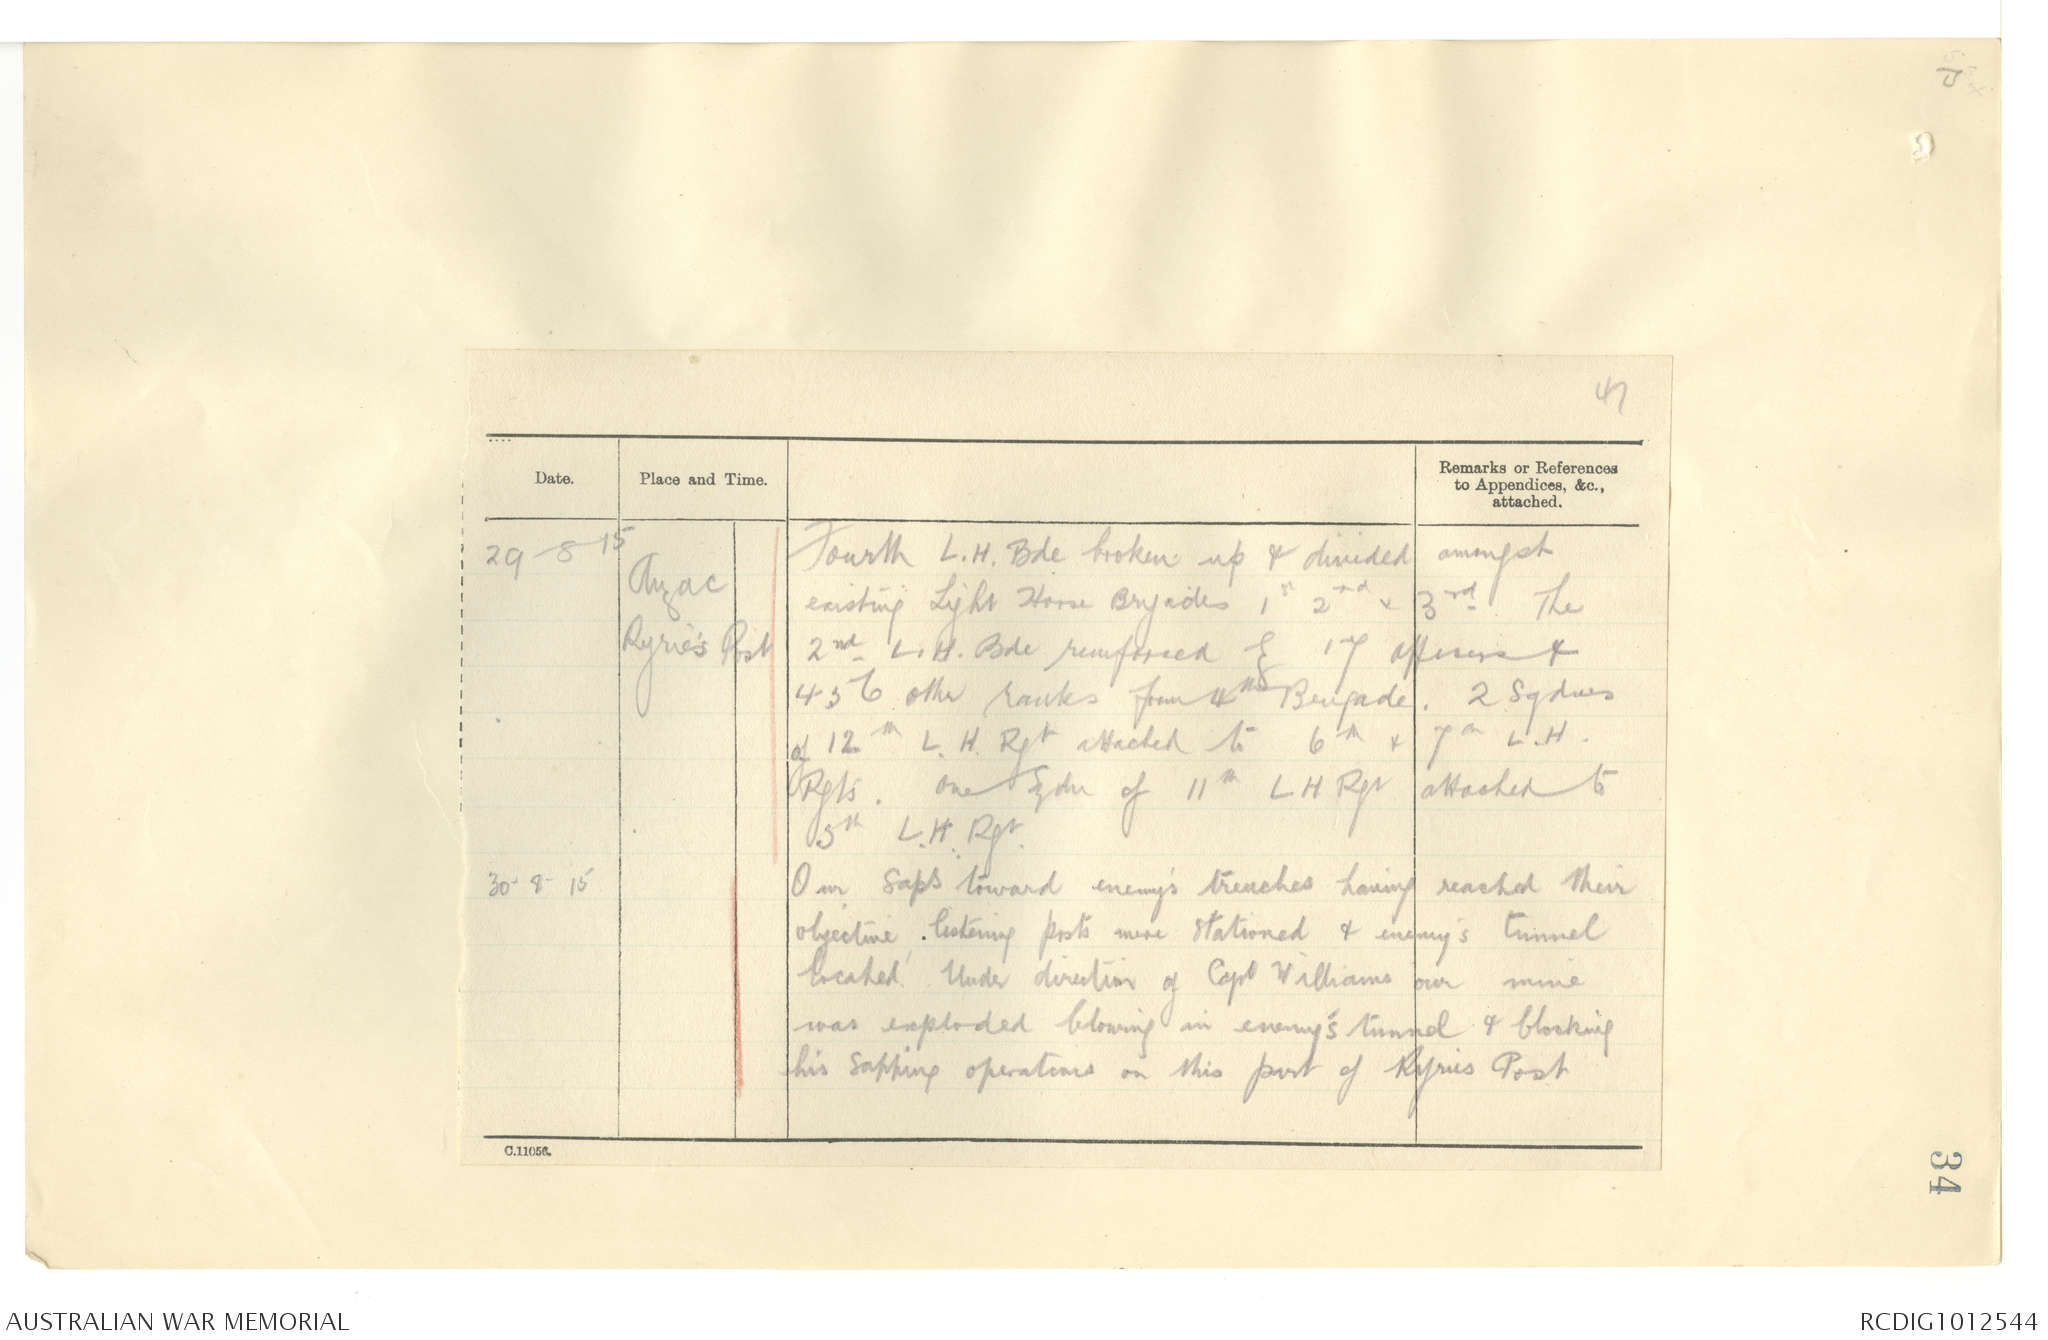 47
Date.
Place and Time.
Remarks or References
to Appendices, &c.,
attached.
29-8-15
Anzac
Ryrie's Post
Fourth L.H. Bde broken up & divided amongst
existing Light Horse Brigades 1st 2nd & 3rd. The
2nd L.H. Bde reinforced by 17 officers &
436 other ranks from 4th Brigade. 2 Sqdns
of 12th L.H. Rgt attached to 6th & 7th L.H.
Rgts. One Sqdn of 11th L H Rgt attached to
5th L.H. Rgt.
30-8-15
Our saps toward enemy's trenches having reached their
objective, listening posts were stationed & enemy's tunnel
located. Under direction of Capt Williams our mine
was exploded blowing in enemy's tunnel & blocking
his sapping operations on this part of Ryries Post
C.11056.
34
AUSTRALIAN WAR MEMORIAL
RCDIG1012544